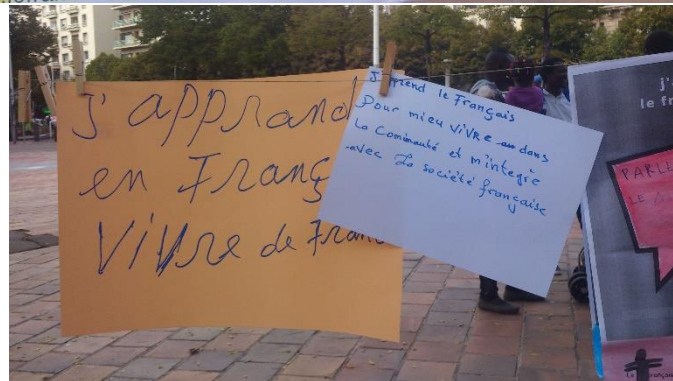 J'apprand
en Franç
Vivre de Franc
J'apprend le Français
Pour mieu vivre dans
la Cominauté et m'integrie
avec La société française
j'
le fr
PARLE
LE